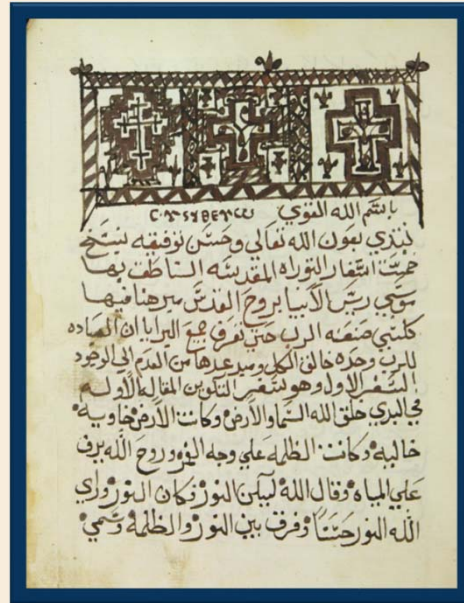 باسم الله القوي
نبتدي بعون الله تعالي وحسن توفيقه نسخ
خمست اسفار التوراه المقدسه الناطق بها
موسي ريس الأنبيا بروح القدس مبرهنا فيها
كلشي صنعه الرب حتي تعرف جميع البرايا ان العباده
للرب وحده خالق الكل ومبدعها من العدم الي الوجود
السفر الاول وهو سفر التكوين المقاله الاوله
في البدي خلق الله السما والأرض وكانت الأرض خاويه
خاليه وكانت الظلمه علي وجه الغمر وروح الله يرف
علي المياه وقال الله ليكن النور فكان النور وراي
الله النور حسنا وفرق بين النور والظلمه وسمي